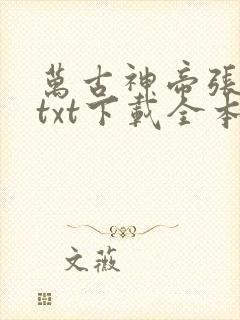 萬古神帝張
txt下載全本
文薇